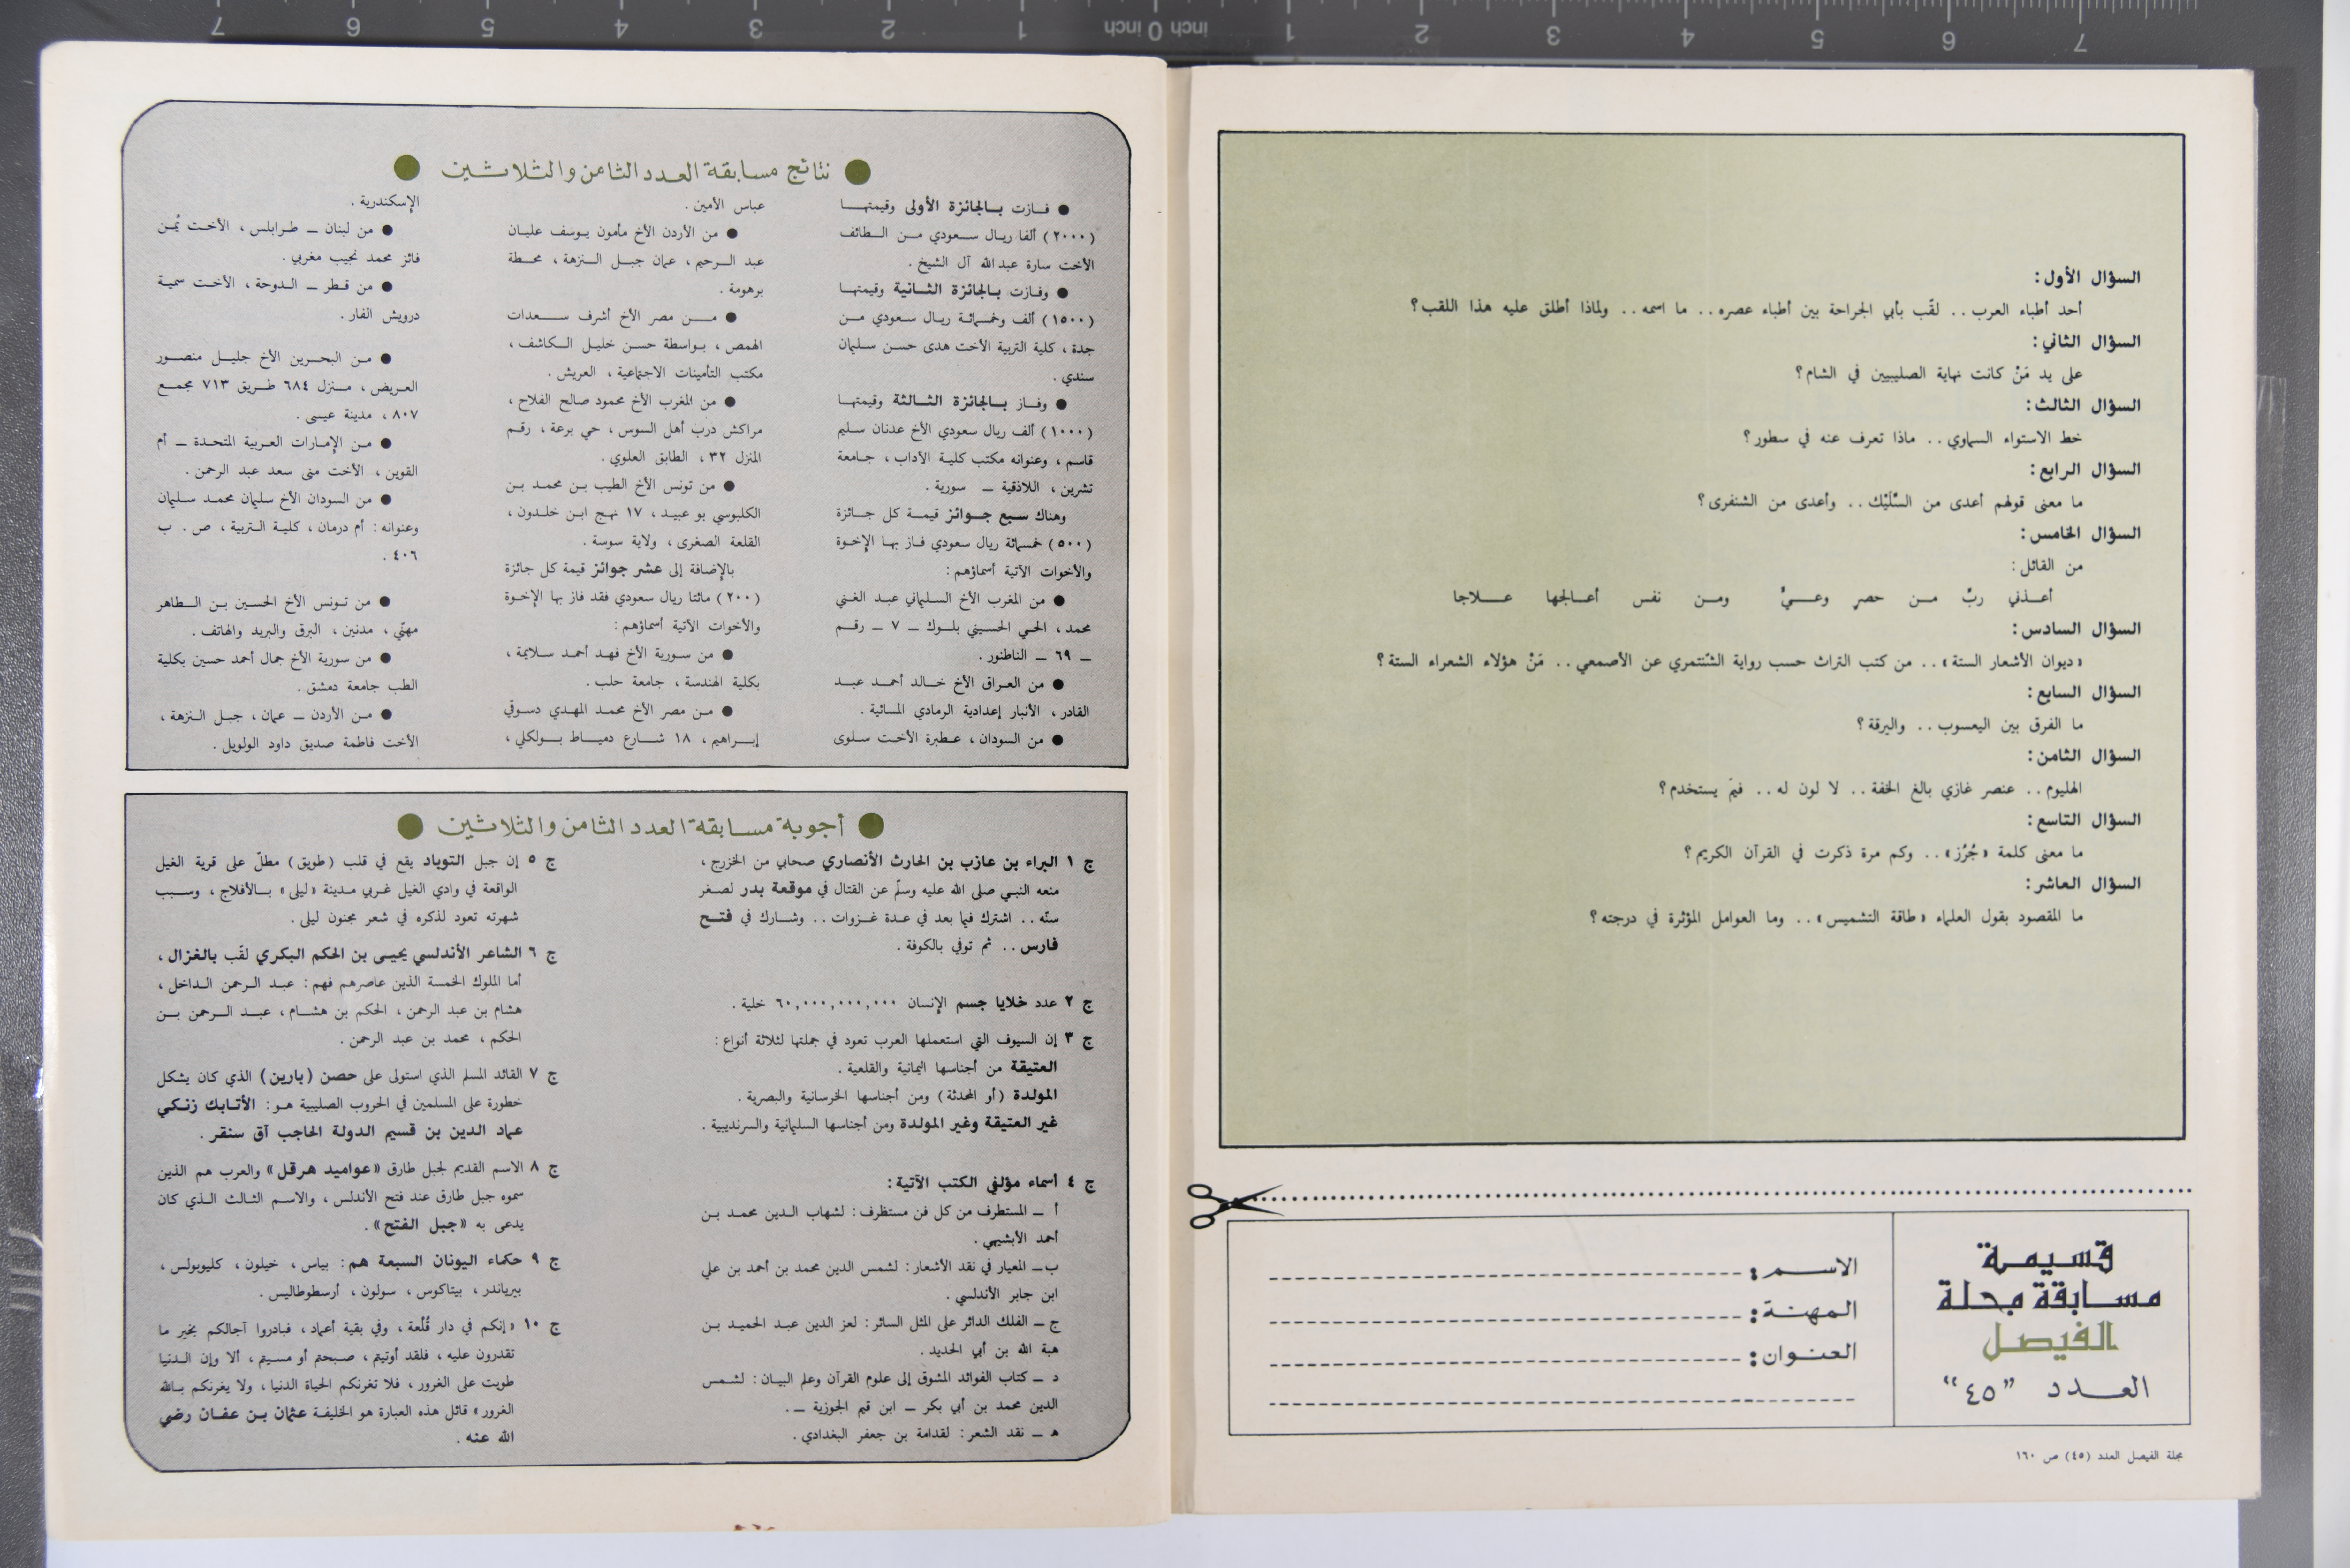 السؤال الأول:
أحد أطباء العرب.. لقّب بأبي الجراحة بين أطباء عصره.. ما اسمه.. ولماذا أطلق عليه هذا اللقب؟
السؤال الثاني:
على يد مَنْ كانت نهاية الصليبيين في الشام؟
السؤال الثالث:
خط الاستواء السماوي.. ماذا تعرف عنه في سطور؟
السؤال الرابع:
ما معنى قولهم أعدى من السُّلَيْك.. وأعدى من الشنفرى؟
السؤال الخامس:
من القائل:
أعـذني ربِّ مـن حصرٍ وعـيٍّ ومـن نفس أعـالجها عـلاجا
السؤال السادس:
«ديوان الأشعار الستة».. من كتب التراث حسب رواية الشنتمري عن الأصمعي.. مَنْ هؤلاء الشعراء الستة؟
السؤال السابع:
ما الفرق بين اليعسوب.. واليرقة؟
السؤال الثامن:
الهليوم.. عنصر غازي بالغ الخفة.. لا لون له.. فيمَ يستخدم؟
السؤال التاسع:
ما معنى كلمة «جُرُز».. وكم مرة ذكرت في القرآن الكريم؟
السؤال العاشر:
ما المقصود بقول العلماء «طاقة التشميس».. وما العوامل المؤثرة في درجته؟
قسيمة
مسابقة مجلة
الفيصل
العدد "٤٥"
الاسم:
المهنة:
العنوان:
مجلة الفيصل العدد (٤٥) ص ١٦٠
نتائج مسابقة العدد الثامن والثلاثين
● فازت بالجائزة الأولى وقيمتها
(٢٠٠٠) ألفا ريال سعودي من الطائف
الأخت سارة عبدالله آل الشيخ.
● وفازت بالجائزة الثانية وقيمتها
(١٥٠٠) ألف وخمسمائة ريال سعودي من
جدة، كلية التربية الأخت هدى حسن سليمان
سندي.
● وفاز بالجائزة الثالثة وقيمتها
(١٠٠٠) ألف ريال سعودي الأخ عدنان سليم
قاسم، وعنوانه مكتب كلية الآداب، جامعة
تشرين، اللاذقية ـ سورية.
وهناك سبع جوائز قيمة كل جائزة
(٥٠٠) خمسمائة ريال سعودي فاز بها الإخوة
والأخوات الآتية أسماؤهم:
● من المغرب الأخ السليماني عبد الغني
محمد، الحي الحسيني بلوك ـ ٧ ـ رقم
ـ ٦٩ ـ الناظور.
● من العراق الأخ خالد أحمد عبد
القادر، الأنبار إعدادية الرمادي المسائية.
● من السودان، عطبرة الأخت سلوى
عباس الأمين.
● من الأردن الأخ مأمون يوسف عليان
عبد الرحيم، عمان جبل النزهة، محطة
برهومة.
● من مصر الأخ أشرف سعدات
الهمص، بواسطة حسن خليل الكاشف،
مكتب التأمينات الاجتماعية، العريش.
● من المغرب الأخ محمود صالح الفلاح،
مراكش درب أهل السوس، حي برعة، رقم
المنزل ٣٢، الطابق العلوي.
● من تونس الأخ الطيب بن محمد بن
الكلبوسي بو عبيد، ١٧ نهج ابن خلدون،
القلعة الصغرى، ولاية سوسة.
بالإضافة إلى عشر جوائز قيمة كل جائزة
(٢٠٠) مائتا ريال سعودي فقد فاز بها الإخوة
والأخوات الآتية أسماؤهم:
● من سورية الأخ فهد أحمد سلايمة،
بكلية الهندسة، جامعة حلب.
● من مصر الأخ محمد المهدي دسوقي
إبراهيم، ١٨ شارع دمياط بولكلي،
الإسكندرية.
● من لبنان ـ طرابلس، الأخت يُمن
فائز محمد نجيب مغربي.
● من قطر ـ الدوحة، الأخت سمية
درويش الفار.
● من البحرين الأخ جليل منصور
العريض، منزل ٦٨٤ طريق ٧١٣ مجمع
٨٠٧، مدينة عيسى.
● من الإمارات العربية المتحدة ـ أم
القوين، الأخت منى سعد عبد الرحمن.
● من السودان الأخ سليمان محمد سليمان
وعنوانه: أم درمان، كلية التربية، ص. ب
٤٠٦.
● من تونس الأخ الحسين بن الطاهر
مهنّي، مدنين، البرق والبريد والهاتف.
● من سورية الأخ جمال أحمد حسين بكلية
الطب جامعة دمشق.
● من الأردن ـ عمان، جبل النزهة،
الأخت فاطمة صديق داود الولويل.
أجوبة مسابقة العدد الثامن والثلاثين
ج ١ البراء بن عازب بن الحارث الأنصاري صحابي من الخزرج،
منعه النبي صلى الله عليه وسلّم عن القتال في موقعة بدر لصغر
سنّه.. اشترك فيما بعد في عدة غزوات.. وشارك في فتح
فارس.. ثم توفي بالكوفة.
ج ٢ عدد خلايا جسم الإنسان ٦٠,٠٠٠,٠٠٠,٠٠٠ خلية.
ج ٣ إن السيوف التي استعملها العرب تعود في جملتها لثلاثة أنواع:
العتيقة من أجناسها اليمانية والقلعية.
المولدة (أو المحدثة) ومن أجناسها الخرسانية والبصرية.
غير العتيقة وغير المولدة ومن أجناسها السليمانية والسرنديبية.
ج ٤ أسماء مؤلفي الكتب الآتية:
أ ـ المستطرف من كل فن مستظرف: لشهاب الدين محمد بن
أحمد الأبشيهي.
ب ـ المعيار في نقد الأشعار: لشمس الدين محمد بن أحمد بن علي
ابن جابر الأندلسي.
ج ـ الفلك الدائر على المثل السائر: لعز الدين عبد الحميد بن
هبة الله بن أبي الحديد.
د ـ كتاب الفوائد المشوق إلى علوم القرآن وعلم البيان: لشمس
الدين محمد بن أبي بكر ـ ابن قيم الجوزية ـ.
هـ ـ نقد الشعر: لقدامة بن جعفر البغدادي.
ج ٥ إن جبل التوباد يقع في قلب (طويق) مطلّ على قرية الغيل
الواقعة في وادي الغيل غربي مدينة «ليلى» بالأفلاج، وسبب
شهرته تعود لذكره في شعر مجنون ليلى.
ج ٦ الشاعر الأندلسي يحيى بن الحكم البكري لقّب بالغزال،
أما الملوك الخمسة الذين عاصرهم فهم: عبد الرحمن الداخل،
هشام بن عبد الرحمن، الحكم بن هشام، عبد الرحمن بن
الحكم، محمد بن عبد الرحمن.
ج ٧ القائد المسلم الذي استولى على حصن (بارين) الذي كان يشكل
خطورة على المسلمين في الحروب الصليبية هو: الأتابك زنكي
عماد الدين بن قسيم الدولة الحاجب آق سنقر.
ج ٨ الاسم القديم لجبل طارق «عواميد هرقل» والعرب هم الذين
سموه جبل طارق عند فتح الأندلس، والاسم الثالث الذي كان
يدعى به «جبل الفتح».
ج ٩ حكماء اليونان السبعة هم: بياس، خيلون، كليوبولس،
بيرياندر، بيتاكوس، سولون، أرسطوطاليس.
ج ١٠ «إنكم في دار قُلْعة، وفي بقية أعمار، فبادروا آجالكم بخير ما
تقدرون عليه، فلقد أوتيتم، صبحتم أو مسيتم، ألا وإن الدنيا
طويت على الغرور، فلا تغرنكم الحياة الدنيا، ولا يغرنكم بالله
الغرور» قائل هذه العبارة هو الخليفة عثمان بن عفان رضي
الله عنه.
7 6 5 4 3 2 1 inch 0 inch 1 2 3 4 5 6 7